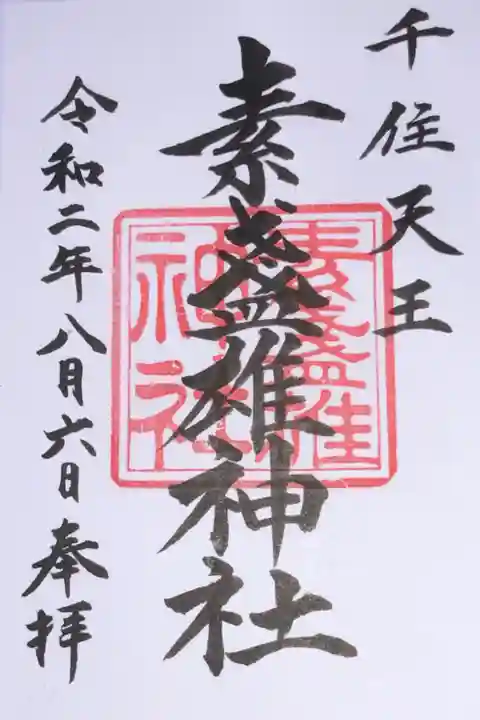 千住天王
素盞雄神社
素盞雄
神社
令和二年八月六日奉拝